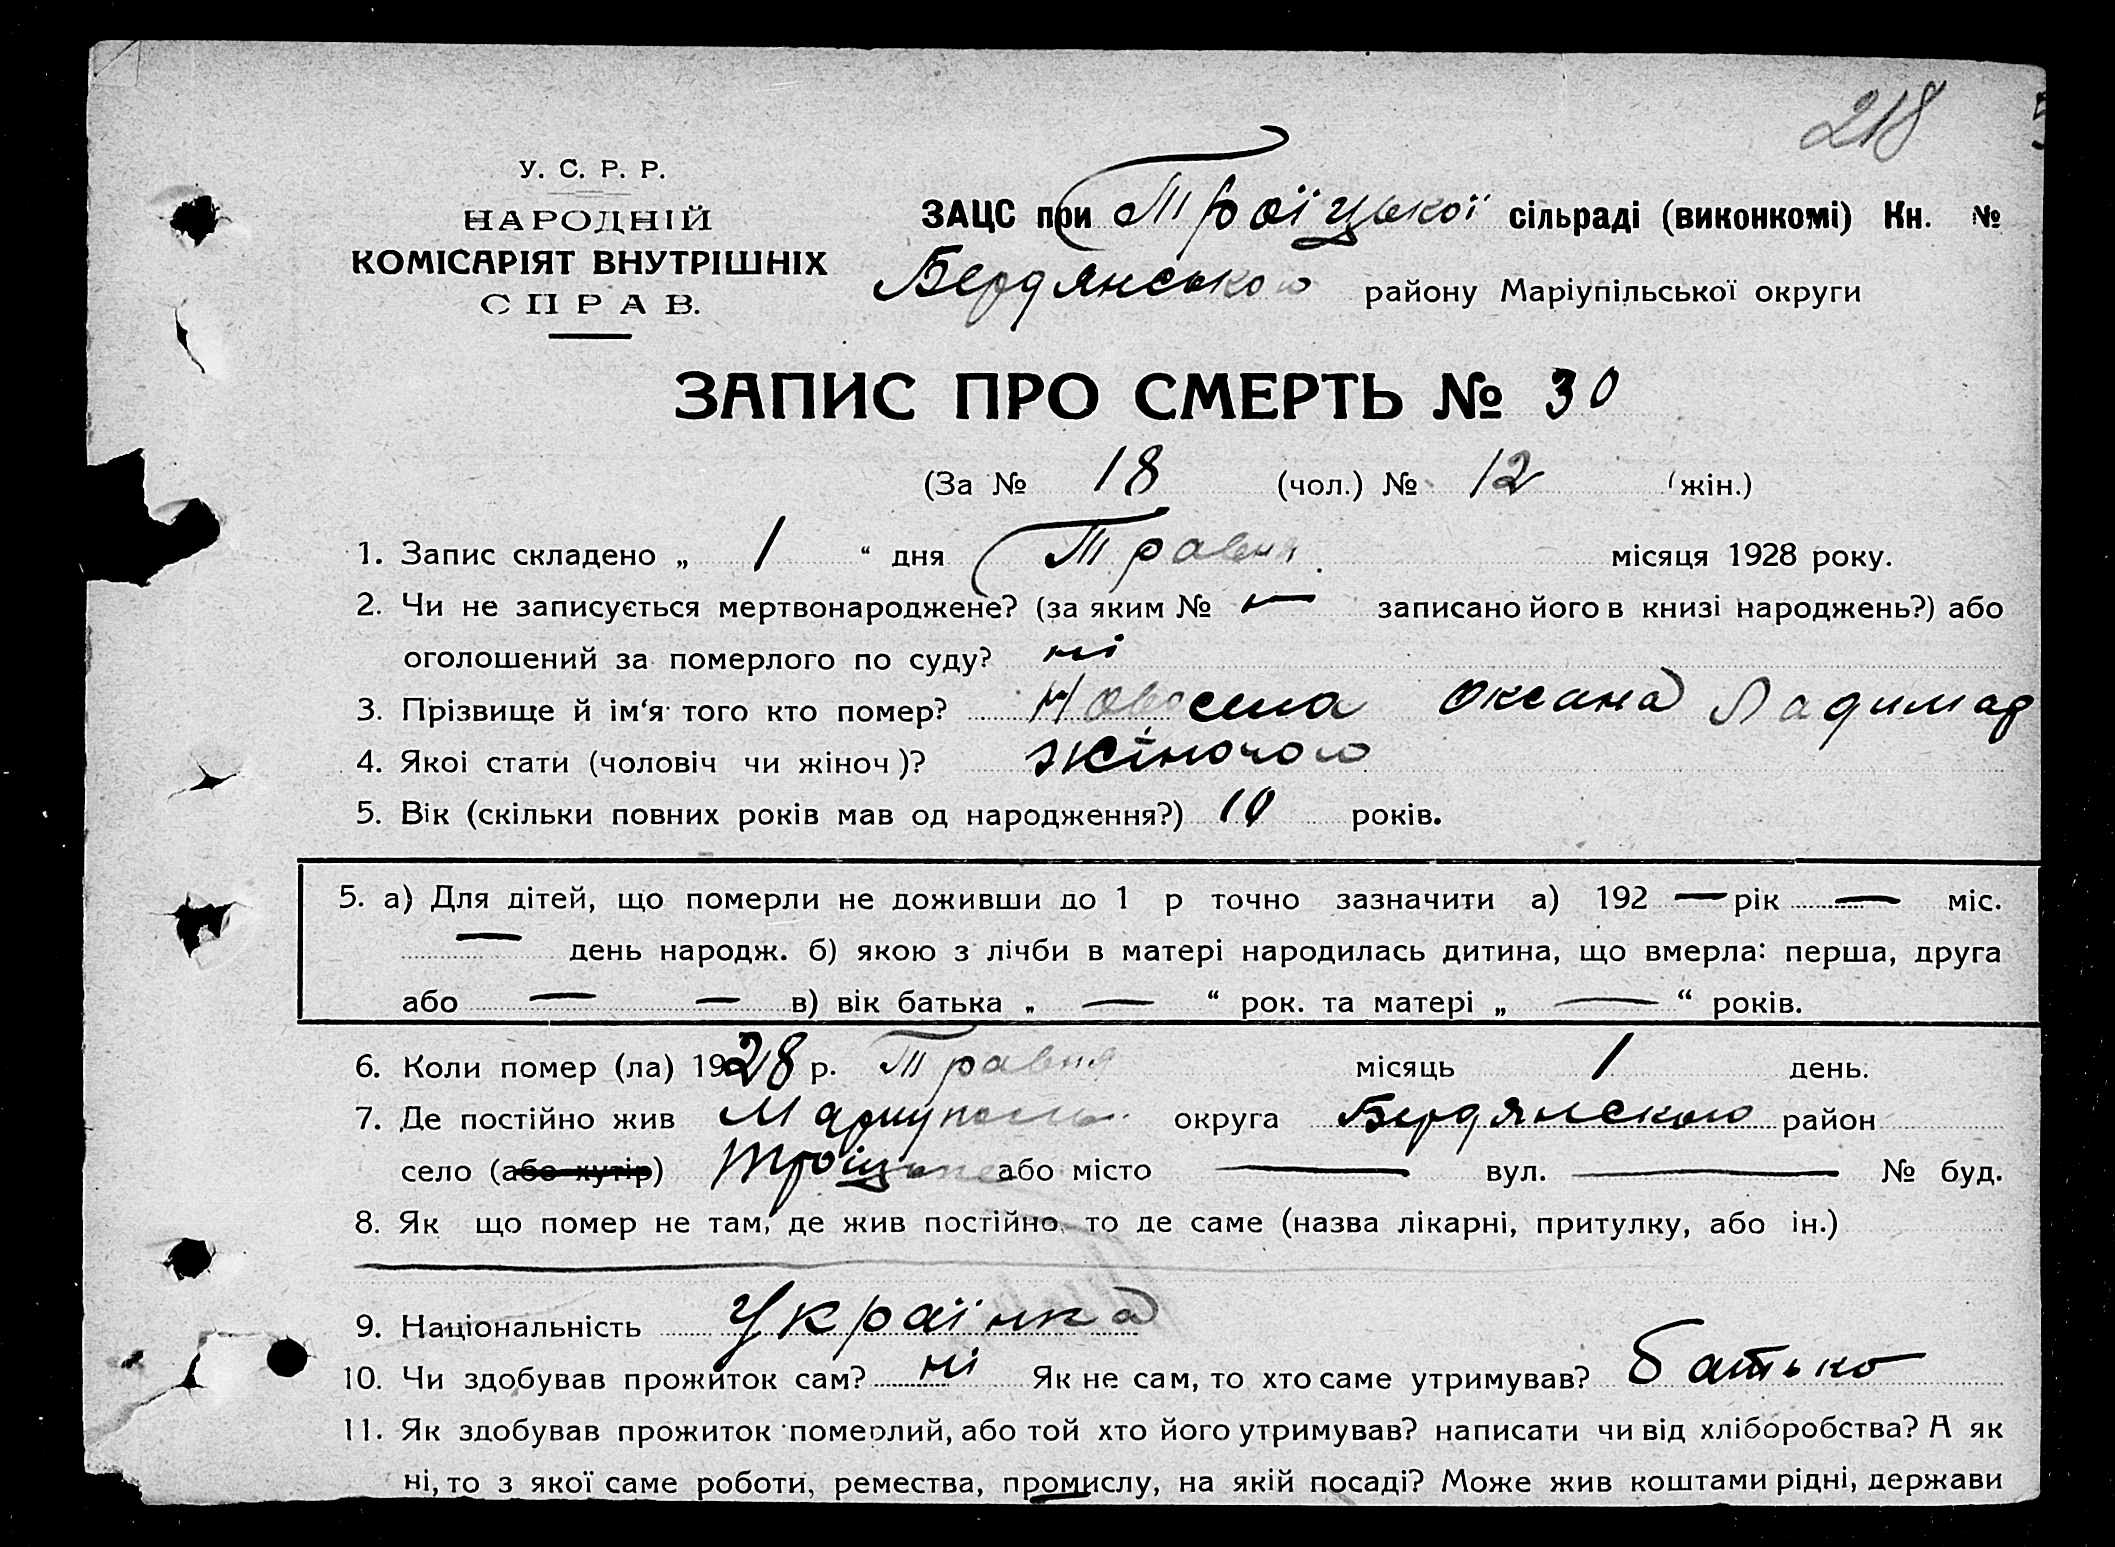 218
У. С. Р. Р.
НАРОДНІЙ
КОМІСАРІЯТ ВНУТРІШНІХ
СПРАВ.
ЗАЦС при Троїцької сільраді (виконкомі) Кн. №
Бердянського району Маріупільської округи
ЗАПИС ПРО СМЕРТЬ № 30
(За № 18 (чол.) № 12 (жін.)
1. Запис складено „ 1 “ дня Травня місяця 1928 року.
2. Чи не записується мертвонароджене? (за яким № — записано його в книзі народжень?) або
оголошений за померлого по суду? ні
3. Прізвище й ім‘я того кто помер? Оксана
4. Якоі стати (чоловіч чи жіноч)? жіночого
5. Вік (скільки повних років мав од народження?) років.
5. а) Для дітей, що померли не доживши до 1 р точно зазначити а) 192 — рік — міс.
— день народж. б) якою з лічби в матері народилась дитина, що вмерла: перша, друга
або — — в) вік батька „ — “ рок. та матері „ — “ років.
6. Коли помер (ла) 1928 р. Травня місяць 1 день.
7. Де постійно жив округа Бердянского район
село (або хутір) або місто — вул. — № буд.
8. Як що помер не там, де жив постійно, то де саме (назва лікарні, притулку, або ін.)
9. Національність Українка
10. Чи здобував прожиток сам? ні Як не сам, то хто саме утримував? батько
11. Як здобував прожиток померлий, або той хто його утримував? написати чи від хліборобства? А як
ні, то з якої саме роботи, ремества, промислу, на якій посаді? Може жив коштами рідні, держави